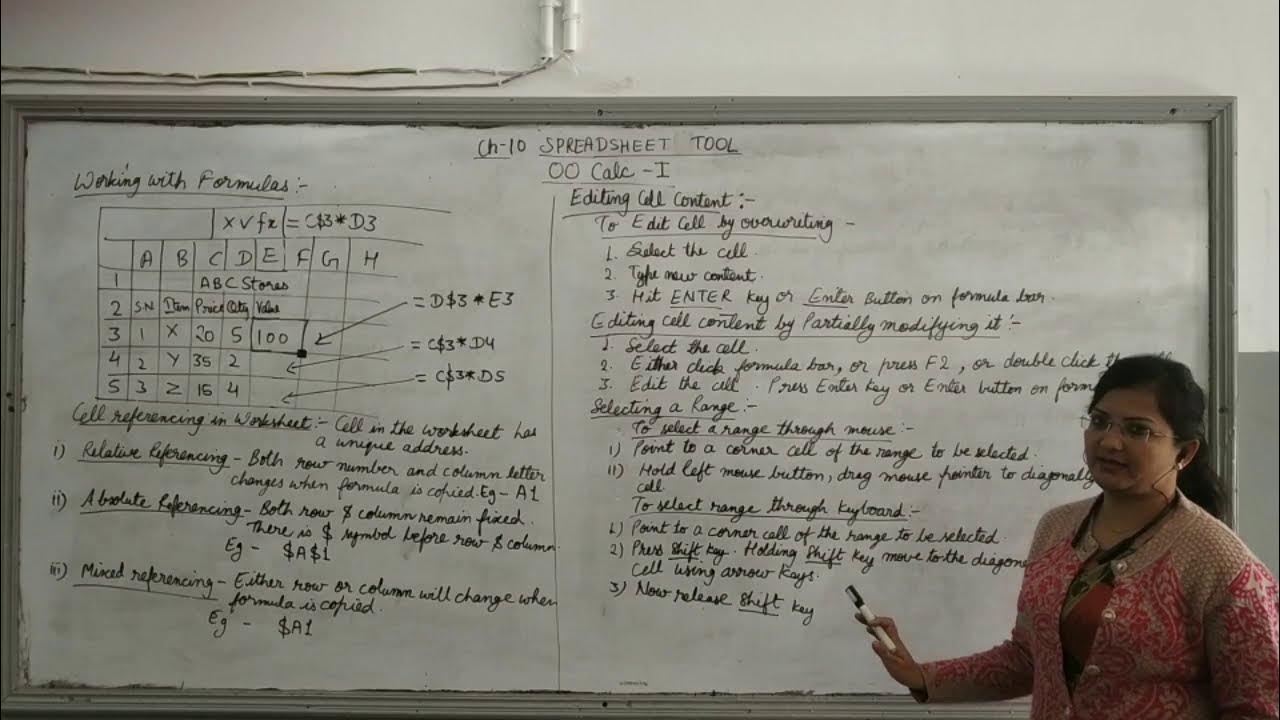 Ch-10 SPREADSHEET TOOL
OO Calc -I
Working with Formulas:-
X V fx = C$3*D3
A B C D E F G H
1 ABC Stores
2 S.N Item Price Qty Value
3 1 X 20 5 100
4 2 Y 35 2
5 3 Z 15 4
= D$3*E3
= C$3*D4
= C$3*D5
Cell referencing in Worksheet:- Cell in the worksheet has
a unique address.
i) Relative Referencing - Both row number and column letter
changes when formula is copied. Eg - A1
ii) Absolute Referencing - Both row & column remain fixed.
There is $ symbol before row & column.
Eg - $A$1
iii) Mixed referencing - Either row or column will change when
formula is copied.
Eg - $A1
Editing Cell Content:-
To Edit Cell by overwriting -
1. Select the cell.
2. Type new content.
3. Hit ENTER key or Enter Button on formula bar.
Editing cell content by Partially modifying it:-
1. Select the cell.
2. Either click formula bar, or press F2, or double click the
3. Edit the cell. Press Enter key or Enter button on
Selecting a Range:-
To select a range through mouse:-
i) Point to a corner cell of the range to be selected.
ii) Hold left mouse button, drag mouse pointer to diagonally
cell.
To select range through keyboard:-
1) Point to a corner cell of the range to be selected.
2) Press Shift key. Holding Shift key move to the
cell using arrow keys.
3) Now release Shift key